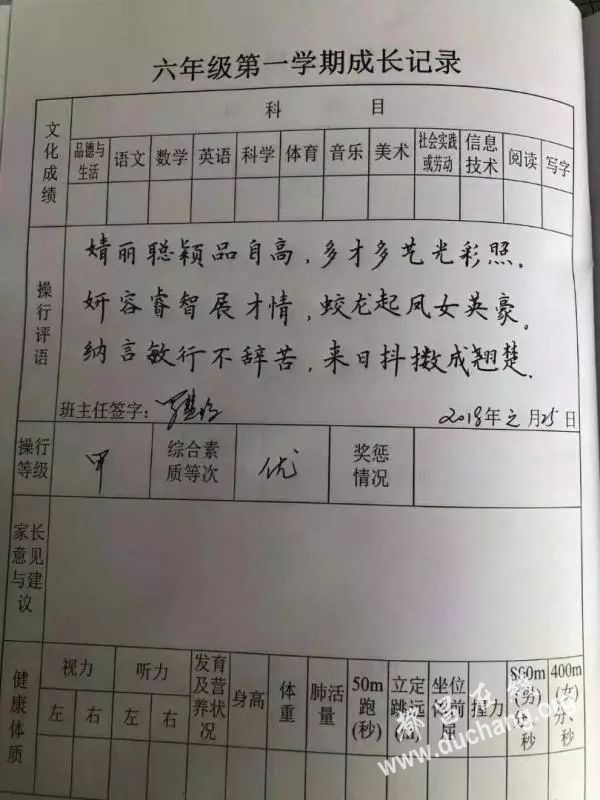 六年级第一学期成长记录
文化成绩
科 目
品德与生活 语文 数学 英语 科学 体育 音乐 美术 社会实践或劳动 信息技术 阅读 写字
操行评语
婧丽聪颖品自高,多才多艺光彩照。
妍容睿智展才情,蛟龙起凤女英豪。
纳言敏行不辞苦,来日抖擞成翘楚.
班主任签字: 2018年元月25日
操行等级 甲 综合素质等次 优 奖惩情况
家长意见与建议
健康体质
视力 听力 发育及营养状况 身高 体重 肺活量 50m跑(秒) 立定跳远 坐位体前屈 握力 800m(男)秒 400m(女)分、秒
左 右 左 右
www.duchang.org